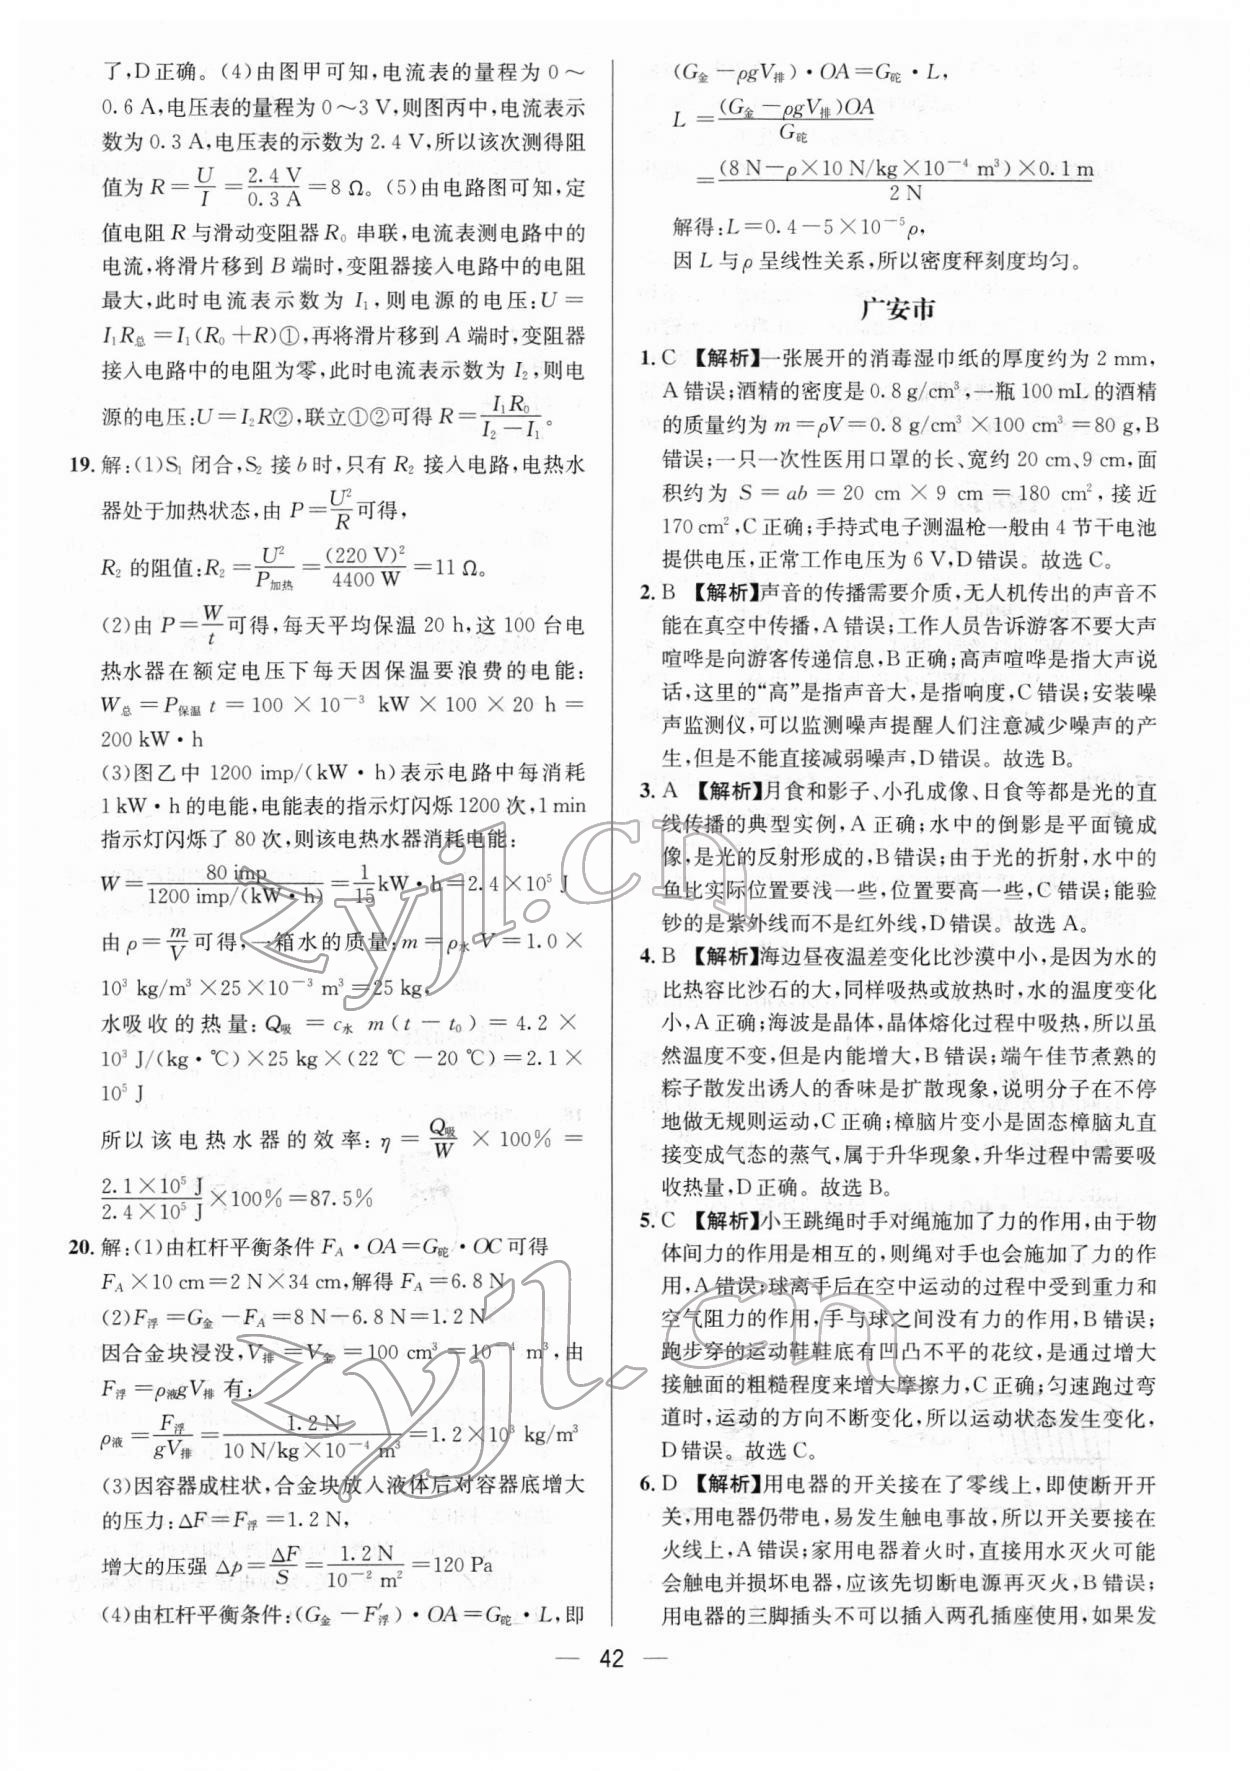 了,D正确。(4)由图甲可知,电流表的量程为0～
0.6 A,电压表的量程为0～3 V,则图丙中,电流表示
数为0.3 A,电压表的示数为2.4 V,所以该次测得阻
值为R=U/I=2.4 V/0.3 A=8 Ω。(5)由电路图可知,定
值电阻R与滑动变阻器R₀串联,电流表测电路中的
电流,将滑片移到B端时,变阻器接入电路中的电阻
最大,此时电流表示数为I₁,则电源的电压:U=
I₁R总=I₁(R₀+R)①,再将滑片移到A端时,变阻器
接入电路中的电阻为零,此时电流表示数为I₂,则电
源的电压:U=I₂R②,联立①②可得R=I₁R₀/(I₂-I₁)。
19. 解:(1)S₁闭合,S₂接b时,只有R₂接入电路,电热水
器处于加热状态,由P=U²/R可得,
R₂的阻值:R₂=U²/P加热=(220 V)²/4400 W=11 Ω。
(2)由P=W/t可得,每天平均保温20 h,这100台电
热水器在额定电压下每天因保温要浪费的电能:
W总=P保温t=100×10⁻³ kW×100×20 h=
200 kW·h
(3)图乙中1200 imp/(kW·h)表示电路中每消耗
1 kW·h的电能,电能表的指示灯闪烁1200次,1 min
指示灯闪烁了80次,则该电热水器消耗电能:
W=80 imp/1200 imp/(kW·h)=1/15 kW·h=2.4×10⁵ J
由ρ=m/V可得,一箱水的质量:m=ρ水V=1.0×
10³ kg/m³×25×10⁻³ m³=25 kg,
水吸收的热量:Q吸=c水m(t-t₀)=4.2×
10³ J/(kg·℃)×25 kg×(22 ℃-20 ℃)=2.1×
10⁵ J
所以该电热水器的效率:η=Q吸/W×100%=
2.1×10⁵ J/2.4×10⁵ J×100%=87.5%
20. 解:(1)由杠杆平衡条件F_A·OA=G砣·OC可得
F_A×10 cm=2 N×34 cm,解得F_A=6.8 N
(2)F浮=G金-F_A=8 N-6.8 N=1.2 N
因合金块浸没,V排=V金=100 cm³=10⁻⁴ m³,由
F浮=ρ液gV排有:
ρ液=F浮/gV排=1.2 N/10 N/kg×10⁻⁴ m³=1.2×10³ kg/m³
(3)因容器成柱状,合金块放入液体后对容器底增大
的压力:ΔF=F浮=1.2 N,
增大的压强Δp=ΔF/S=1.2 N/10⁻² m²=120 Pa
(4)由杠杆平衡条件:(G金-F′浮)·OA=G砣·L,即
(G金-ρgV排)·OA=G砣·L,
L=(G金-ρgV排)OA/G砣
=(8 N-ρ×10 N/kg×10⁻⁴ m³)×0.1 m/2 N
解得:L=0.4-5×10⁻⁵ρ,
因L与ρ呈线性关系,所以密度秤刻度均匀。
广安市
1. C 【解析】一张展开的消毒湿巾纸的厚度约为2 mm,
A错误;酒精的密度是0.8 g/cm³,一瓶100 mL的酒精
的质量约为m=ρV=0.8 g/cm³×100 cm³=80 g,B
错误;一只一次性医用口罩的长、宽约20 cm、9 cm,面
积约为S=ab=20 cm×9 cm=180 cm²,接近
170 cm²,C正确;手持式电子测温枪一般由4节干电池
提供电压,正常工作电压为6 V,D错误。故选C。
2. B 【解析】声音的传播需要介质,无人机传出的声音不
能在真空中传播,A错误;工作人员告诉游客不要大声
喧哗是向游客传递信息,B正确;高声喧哗是指大声说
话,这里的“高”是指声音大,是指响度,C错误;安装噪
声监测仪,可以监测噪声提醒人们注意减少噪声的产
生,但是不能直接减弱噪声,D错误。故选B。
3. A 【解析】月食和影子、小孔成像、日食等都是光的直
线传播的典型实例,A正确;水中的倒影是平面镜成
像,是光的反射形成的,B错误;由于光的折射,水中的
鱼比实际位置要浅一些,位置要高一些,C错误;能验
钞的是紫外线而不是红外线,D错误。故选A。
4. B 【解析】海边昼夜温差变化比沙漠中小,是因为水的
比热容比沙石的大,同样吸热或放热时,水的温度变化
小,A正确;海波是晶体,晶体熔化过程中吸热,所以虽
然温度不变,但是内能增大,B错误;端午佳节煮熟的
粽子散发出诱人的香味是扩散现象,说明分子在不停
地做无规则运动,C正确;樟脑片变小是固态樟脑丸直
接变成气态的蒸气,属于升华现象,升华过程中需要吸
收热量,D正确。故选B。
5. C 【解析】小王跳绳时手对绳施加了力的作用,由于物
体间力的作用是相互的,则绳对手也会施加了力的作
用,A错误;球离手后在空中运动的过程中受到重力和
空气阻力的作用,手与球之间没有力的作用,B错误;
跑步穿的运动鞋鞋底有凹凸不平的花纹,是通过增大
接触面的粗糙程度来增大摩擦力,C正确;匀速跑过弯
道时,运动的方向不断变化,所以运动状态发生变化,
D错误。故选C。
6. D 【解析】用电器的开关接在了零线上,即使断开开
关,用电器仍带电,易发生触电事故,所以开关要接在
火线上,A错误;家用电器着火时,直接用水灭火可能
会触电并损坏电器,应该先切断电源再灭火,B错误;
用电器的三脚插头不可以插入两孔插座使用,如果发
— 42 —
zyjl.cn
zyjl.cn